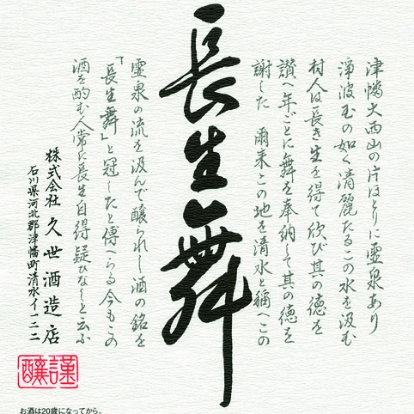 津幡大西山の片ほとりに霊泉あり
浄波玉の如く清麗たるこの水を汲む
村人は長き生を得て欣び其の徳を
讃へ年ごとに舞を奉納して其の徳を
謝した 爾来この地を清水と稱へこの
長生舞
霊泉の流を汲んで醸られし酒の銘を
「長生舞」と冠したと傳へらる今もこの
酒を酌む人常に長生自得疑ひなしと云ふ
株式会社 久世酒造店
石川県河北郡津幡町清水イ一二二
謹醸
お酒は20歳になってから。